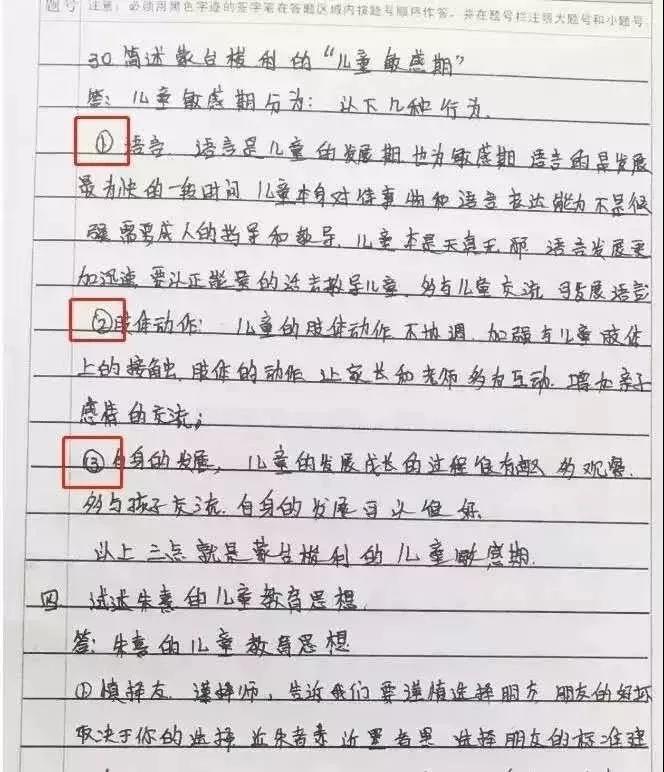 题号 注意：必须用黑色字迹的签字笔在答题区域内按题号顺序作答，并在题号栏注明大题号和小题号
30 简述蒙台梭利的“儿童敏感期”
答：儿童敏感期分为：以下几种行为.
① 语言. 语言是儿童的发展期也为敏感期 语言的是发展
最为快的一段时间 儿童本身对待事物和语言表达能力不是很
强 需要成人的指导和教导. 儿童本是天真无邪 语言发展更
加迅速 要以正能量的话去教导儿童. 多与儿童交流 与发展语言
②肢体动作： 儿童的肢体动作不协调. 加强与儿童肢体
上的接触. 肢体的动作 让家长和老师多为互动. 增加亲子
感情的交流；
③自身的发展， 儿童的发展成长的过程很有 多观察.
多与孩子交流. 自身的发展可以很好.
以上三点就是蒙台梭利的儿童敏感期.
四 试述朱熹的儿童教育思想.
答：朱熹的儿童教育思想
① 慎择友. 谨择师，告诉我们要谨慎选择朋友 朋友的好坏
取决于你的选择 近朱者赤 近墨者黑 选择朋友的标准建